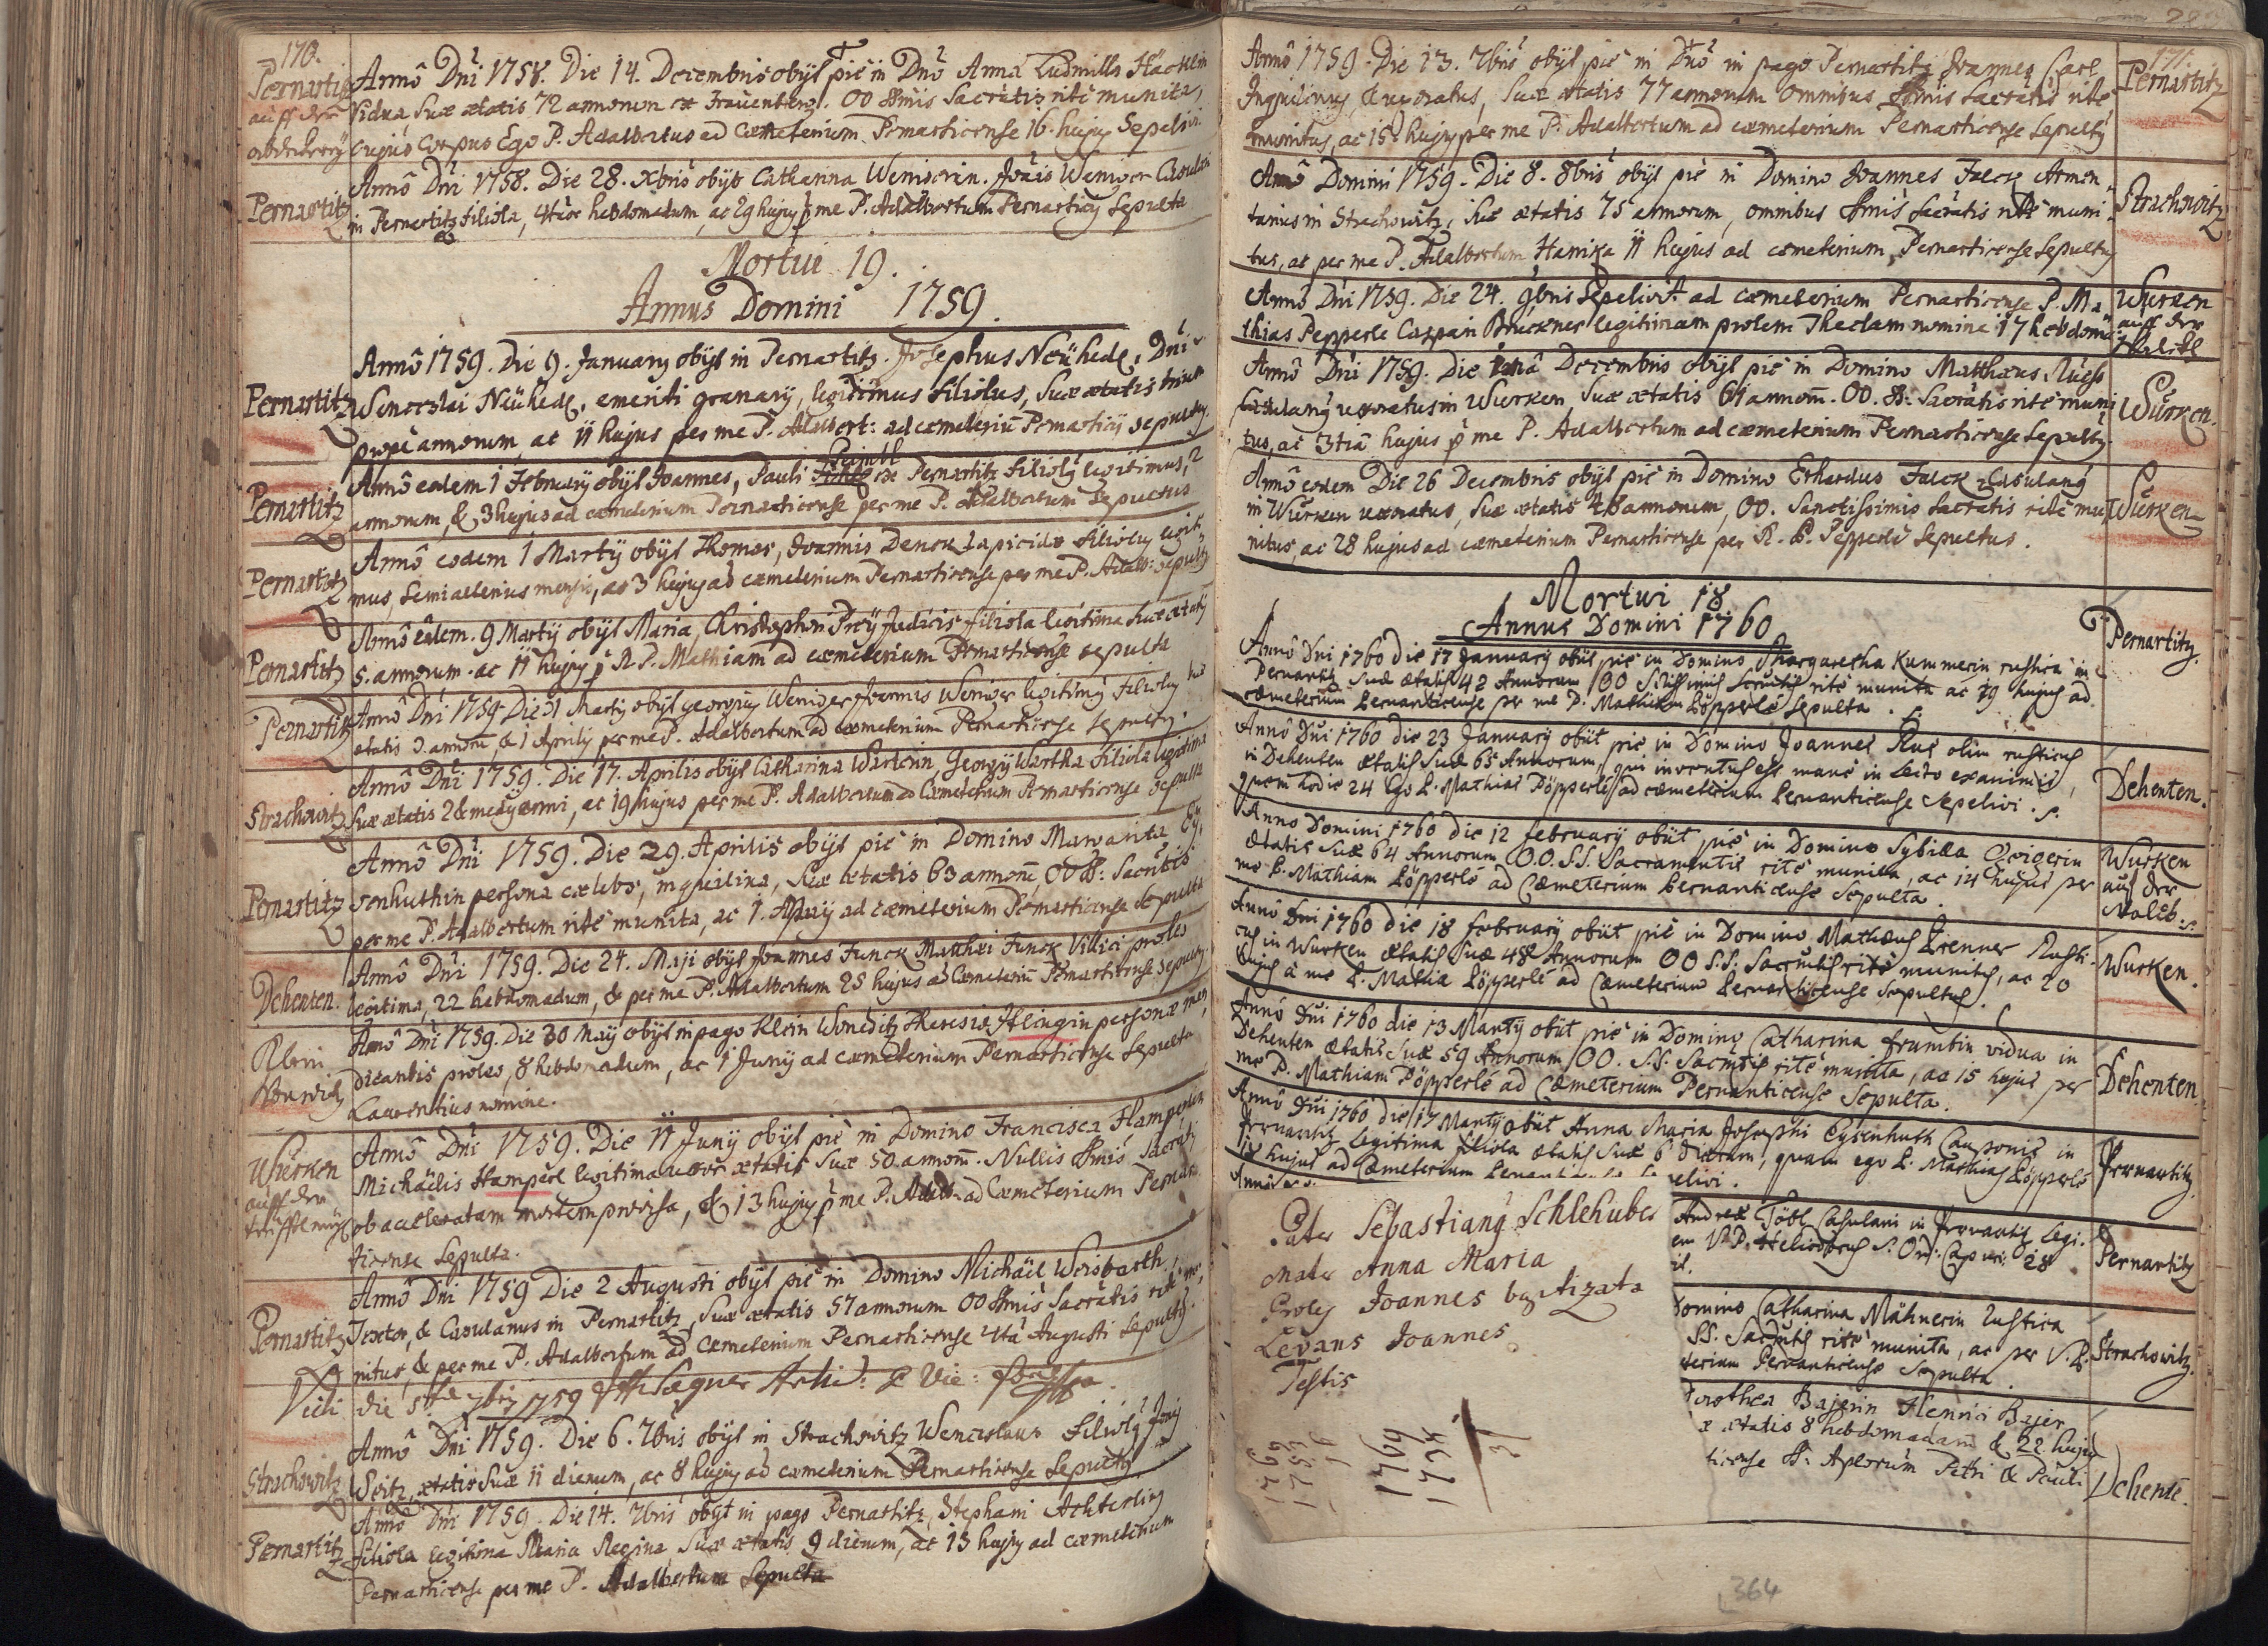 170.
Pernartitz
auff der
Anno Dni 1758. Die 14. Decembris obyt pie in Dno Anna Ludmilla Hacklin
Vidua, suæ ætatis 72 annorum ex Frauenberg. OO SSmis Sacratis rite munita,
cujus Corpus Ego P. Adalbertus ad Cæmeterium Pernarticense 16. hujus Sepelivi.
Pernartitz
Anno Dni 1758. Die 28. xbris obyt Catharina Wenigerin. Joãis Weniger Casulani
in Pernartitz filiola, 4tuor hebdomadum, ac 29 hujus p me P. Adalbertum Pernarticy Sepulta
Mortui 19.
Annus Domini 1759.
Pernartitz
Anno 1759. Die 9. January obyt in Pernartitz. Josephus Neühedl, Dni
Wenceslai Neühedl, emeriti granary, legitimus filiolus, suæ ætatis trium
prope annorum, ac 11 hujus per me P. Adalbert: ad cæmeteriũ Pernarticy sepultus
Pernartitz
Anno eodem 1 February obyt Joannes, Pauli ex Pernartitz filioly legitimus, 2
annorum, & 3 hujus ad cæmeterium Pernarticense per me P. Adalbertum Sepultus
Pernartitz
Anno eodem 1 Marty obyt Thomas, Joannis Denck Lapicidæ filioly legiti
mus, semialterius mensis, ac 3 hujus ad cæmeterium Pernarticense per me P. Adalb: sepulty
Pernartitz
Anno eodem. 9 Marty obyt Maria, Christophori Prey Judicis filiola legitima suæ ætatis
5. annorum. ac 11 hujus p R. P. Mathiam ad cæmeterium Pernarticense sepulta
Pernartitz
Anno Dni 1759 Die 31 Marty obyt georgius Weniger Joannis Weniger legitimy filioly suæ
ætatis 3. annorũ & 1 Aprily per me P. Adalbertum ad cæmeterium Pernarticense Sepulty.
Strachowitz
Anno Dni 1759. Die 17. Aprilis obyt Catharina Warterin Georgy Wartha filiola legitima
suæ ætatis 2 & medy anni, ac 19 hujus per me P. Adalbertum ad Cæmeterium Pernarticense Sepulta
Pernartitz
Anno Dni 1759. Die 29. Aprilis obyt pie in Domino Margarita Ey:
senhuthin persona cælebs, inquilina, suæ ætatis 63 annorũ, OO SS: Sacratis
per me P. Adalbertum rite munita, ac 1. May ad cæmeterium Pernarticense Sepulta
Dehenten.
Anno Dni 1759. Die 24. Maji obyt Joannes Funck Matthæi Funck Villici proles
legitima, 22 hebdomadum, & per me P. Adalbertum 25 hujus ad Cæmeteriũ Pernarticense sepulty
Klein
Wonwitz
Anno Dni 1759. Die 30 May obyt in pago Klein Woneditz Theresiæ Hlingin personæ men,
dicantis proles, 8 hebdomadum, ac 1 Juny ad cæmeterium Pernarticense Sepulta
Laurentius nomine.
Würken
auff der
Anno Dni 1759. Die 11 Juny obyt pie in Domino Francisca Hamperlin
Michäelis Hamperl legitima uxor ætatis suæ 50 annorũ. Nullis SSmis Sacratis
ob acceleratam mortem provisa, & 13 hujus p me P. Adalb: ad Cæmeterium Pernar
ticense Sepulta.
Pernartitz
Anno Dni 1759 Die 2 Augusti obyt pie in Domino Michäel Weisbarth.
Textor, & Casulanus in Pernartitz, suæ ætatis 57 annorum OO SSmis Sacratis rite mu,
nitus, & per me P. Adalbertum ad Cæmeterium Pernarticense 4ta Augusti Sepulty.
Vidi die 5ta 7bris 1759
Strachowitz
Anno Dni 1759. Die 6. 7bris obyt in Strachowitz Wenceslaus filioly Joãis
Veitz, ætatis suæ 11 dierum, ac 8 hujus ad cæmeterium Pernarticense Sepulty
Pernartitz
Anno Dni 1759. Die 14. 7bris obyt in pago Pernartitz, Stephani Achterling
filiola legitima Maria Regina suæ ætatis 9 dierum, ac 15 hujus ad cæmeterium
Pernarticense per me P. Adalbertum Sepulta
171.
Anno 1759. Die 13. 7bris obyt pie in Dno in pago Pernartitz Joannes Carl
Inquilinus, & uxoratus, suæ ætatis 77 annorum omnibus SSmis Sacratis rite
munitus, ac 15 hujus per me P. Adalbertum ad cæmeterium Pernarticense Sepulty
Pernartitz
Anno Domini 1759. Die 8. 8bris obyt pie in Domino Joannes Falck Armen,
tarius in Strachowitz, suæ ætatis 75 annorum, omnibus SSmis Sacratis rite muni
tus, ac per me P. Adalbertum Hanika 11 hujus ad cæmeterium Pernarticense Sepulty
Strachowitz
Anno Dni 1759. Die 24. 9bris Sepelivit ad cæmeterium Pernarticense P. Ma
thias Pepperle Caspari Brückner legitimam prolem Theclam nomine 17 hebdom:
Wurken
auff der
Anno Dni 1759. Die 1mâ Decembris obyt pie in Domino Matthæus Rueß
Casulany uxoratus in Wurken suæ ætatis 61 annorũ. OO. SS: Sacratis rite muni
tus, ac 3tiâ hujus p me P. Adalbertum ad cæmeterium Pernarticense Sepulty.
Würken.
Anno eodem Die 26 Decembris obyt pie in Domino Erhardus Falck Casulany
in Würken uxoratus, suæ ætatis 48 annorum, OO. Sanctissimis Sacratis rite mu,
nitus, ac 28 hujus ad cæmeterium Pernarticense per R. P. Pepperle Sepultus.
Würken
Mortui 18
Annus Domini 1760
Anno Dni 1760 die 17 January obiit pie in Domino Margaretha Kummerin rustica in
Pernartitz suæ ætatis 42 Annorum OO SStissimis Scrmtis rite munita ac 19 hujus ad
cæmeterium Pernanticense per me P. Mathiam Pöpperle Sepulta.
Pernartitz.
Anno Dni 1760 die 23 January obiit pie in Domino Joannes Rus olim rusticus
in Dehenten ætatis suæ 65 Annorum, qui inventus est mane in lecto exanimis,
quem hodie 24 Ego P. Mathias Pöpperle ad cæmeterium Pernanticense Sepelivi.
Dehenten.
Anno Domini 1760 die 12 february obiit pie in Domino Sybilla Gvigerin
ætatis suæ 64 Annorum OO.SS. Sacramentis rite munita, ac 14 hujus per
me P. Mathiam Pöpperle ad Cæmeterium Pernanticense Sepulta.
Wurken
auf der
Anno Dni 1760 die 18 february obiit pie in Domino Mathæus Prenner Rusti-
cus in Wurken ætatis suæ 48 Annorum OO SS. Sacrmtis rite munitus, ac 20
hujus à me P. Mathia Pöpperle ad Cæmeterium Pernanticense Sepultus.
Wurken.
Anno Dni 1760 die 13 Marty obiit pie in Domino Catharina frumtin vidua in
Dehenten ætatis suæ 59 Annorum OO. SS. Sacrmtis rite munita, ac 15 hujus per
me P. Mathiam Pöpperle ad Cæmeterium Pernanticense Sepulta.
Dehenten
Anno Dni 1760 die 17 Marty obiit Anna Maria Josephi Eysenhuth Cauponis in
Pernantitz Legitima filiola ætatis suæ 6 dierum, quam ego P. Mathias Pöpperle
hujus ad Cæmeterium elivi.
Pernantitz.
Andreæ Töbl Casulani in Pernantitz Legi-
28
Pernartitz
Domino Catharina Mähnerin rustica
SS. Sacrmtis rite munita, ac per V. P.
terium Pernanticense Sepulta
Strachowitz.
Dorothea Bajerin Henrici Bajer
æ ætatis 8 hebdomadam & 22 hujus
ticense SS. Aplorum Petri & Pauli
Dehente.
Pater Sebastiany Schlehuber
Mater Anna Maria
Proles Joannes baptizata
Levans Joannes
Testis
1769
1753
16
1769
1734
37
364